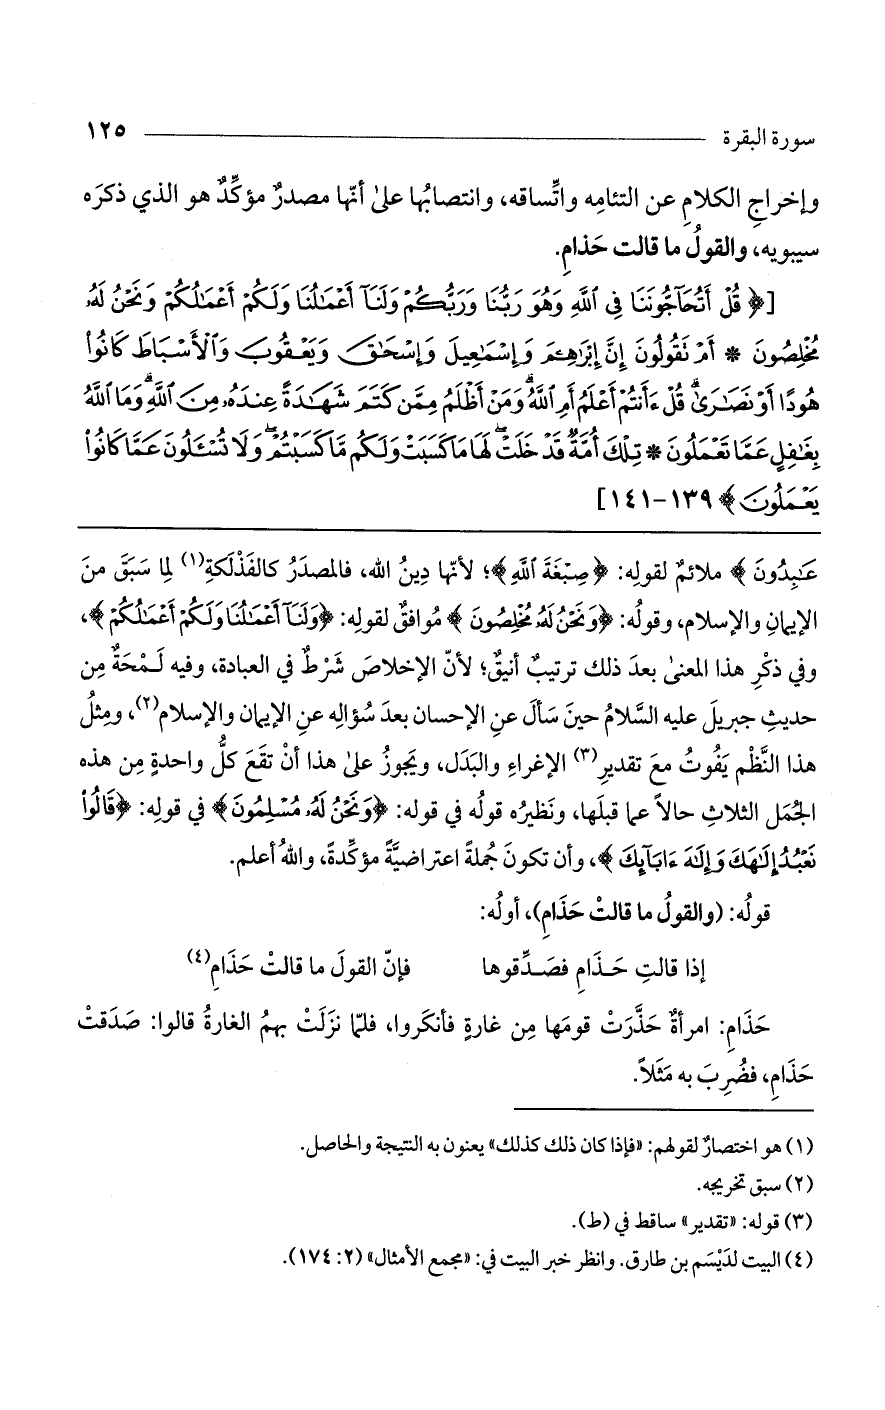 سورة البقرة ١٢٥
وإخراجِ الكلامِ عن التئامِه واتِّساقه، وانتصابُها علىٰ أنّها مصدرٌ مؤكِّدٌ هو الذي ذكرَه
سيبويه، والقولُ ما قالت حَذامِ.
[﴿ قُلْ أَتُحَآجُّونَنَا فِى ٱللَّهِ وَهُوَ رَبُّنَا وَرَبُّكُمْ وَلَنَآ أَعْمَـٰلُنَا وَلَكُمْ أَعْمَـٰلُكُمْ وَنَحْنُ لَهُۥ
مُخْلِصُونَ * أَمْ نَقُولُونَ إِنَّ إِبْرَٰهِـۧمَ وَإِسْمَـٰعِيلَ وَإِسْحَـٰقَ وَيَعْقُوبَ وَٱلْأَسْبَاطَ كَانُوا۟
هُودًا أَوْ نَصَـٰرَىٰ ۗ قُلْ ءَأَنتُمْ أَعْلَمُ أَمِ ٱللَّهُ ۗ وَمَنْ أَظْلَمُ مِمَّن كَتَمَ شَهَـٰدَةً عِندَهُۥ مِنَ ٱللَّهِ ۗ وَمَا ٱللَّهُ
بِغَـٰفِلٍ عَمَّا تَعْمَلُونَ * تِلْكَ أُمَّةٌ قَدْ خَلَتْ ۖ لَهَا مَا كَسَبَتْ وَلَكُم مَّا كَسَبْتُمْ ۖ وَلَا تُسْـَٔلُونَ عَمَّا كَانُوا۟
يَعْمَلُونَ ﴾ ١٣٩-١٤١]
عَـٰبِدُونَ ﴾ ملائمٌ لقولِه: ﴿صِبْغَةَ ٱللَّهِ﴾؛ لأنّها دِينُ الله، فالمصدَرُ كالفَذْلَكةِ(١) لِما سَبَقَ منَ
الإيمانِ والإسلام، وقولُه: ﴿وَنَحْنُ لَهُۥ مُخْلِصُونَ ﴾ مُوافقٌ لقولِه: ﴿وَلَنَآ أَعْمَـٰلُنَا وَلَكُمْ أَعْمَـٰلُكُمْ ﴾،
وفي ذكْرِ هذا المعنىٰ بعدَ ذلك ترتيبٌ أنيقٌ؛ لأنّ الإخلاصَ شَرْطٌ في العبادة، وفيه لَـمْحَةٌ مِن
حديثِ جبريلَ عليه السَّلامُ حينَ سَألَ عنِ الإحسان بعدَ سُؤالِه عنِ الإيمانِ والإسلام(٢)، ومِثلُ
هذا النَّظْم يَفُوتُ معَ تقديرِ(٣) الإغراءِ والبَدَل، ويَجوزُ علىٰ هذا أنْ تقَعَ كلُّ واحدةٍ مِن هذه
الجُمَل الثلاثِ حالاً عما قبلَها، ونَظيرُه قولُه في قوله: ﴿وَنَحْنُ لَهُۥ مُسْلِمُونَ﴾ في قولِه: ﴿قَالُوا۟
نَعْبُدُ إِلَـٰهَكَ وَإِلَـٰهَ ءَابَآئِكَ ﴾، وأن تكونَ جُملةً اعتراضيَّةً مؤكِّدةً، واللهُ أعلم.
قولُه: (والقولُ ما قالتْ حَذَامِ)، أولُه:
إذا قالتِ حَـذَامِ فصَـدِّقوها فإنّ القولَ ما قالتْ حَذَامِ(٤)
حَذَامِ: امرأةٌ حَذَّرَتْ قومَها مِن غارةٍ فأنكَروا، فلمّا نزَلَتْ بهمُ الغارةُ قالوا: صَدَقتْ
حَذَامِ، فضُرِبَ به مَثَلاً.
(١) هو اختصارٌ لقولهم: «فإذا كان ذلك كذلك» يعنون به النتيجة والحاصل.
(٢) سبق تخريجه.
(٣) قوله: «تقدير» ساقط في (ط).
(٤) البيت لدَيْسَم بن طارق. وانظر خبر البيت في: «مجمع الأمثال» (٢: ١٧٤).